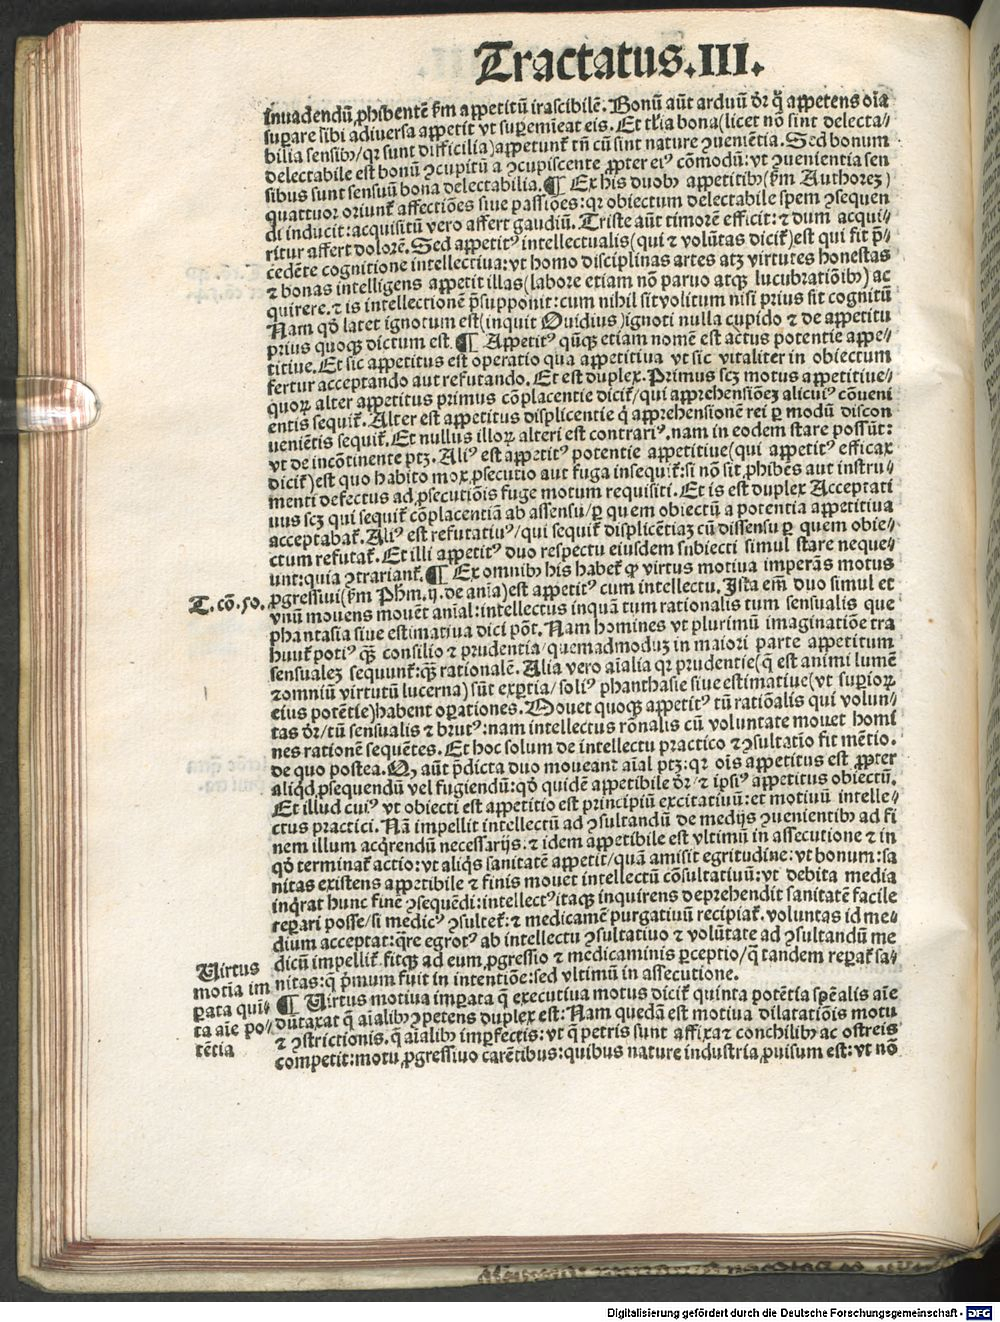 Tractatus.III.
inuadendū ꝓhibentē ẜm appetitū irascibilē. Bonū aūt arduū dr̄ qd̓ appetens oīa
suꝑare sibi aduersa appetit vt suꝑemineat eis. Et talia bona(licet nō sint delecta⸗
bilia sensibꝰ/qꝛ sunt difficilia)appetunt᷑ tn̄ cū sint nature ꝯueniētia. Sed bonum
delectabile est bonū ꝯcupitū a ꝯcupiscente ꝓpter eiꝰ cōmodū: vt ꝯuenientia sen
sibus sunt sensuū bona delectabilia.¶ Ex his duobꝰ appetitibꝰ(ẜm Authorez)
quattuor oriunt᷑ affectiōes siue passiōes: qꝛ obiectum delectabile spem ꝯsequen
di inducit: acquisitū vero affert gaudiū. Triste aūt timorē efficit: ⁊ dum acqui⸗
ritur affert dolorē. Sed appetitꝰ intellectualis(qui ⁊ volūtas dicit᷑)est qui fit p̄⸗
cedēte cognitione intellectiua: vt homo disciplinas artes atqꝫ virtutes honestas
⁊ bonas intelligens appetit illas(labore etiam nō paruo atqꝫ lucubratiōibꝰ) ac
quirere. ⁊ is intellectionē p̄supponit: cum nihil sit volitum nisi prius sit cognitū
Nam qd̓ latet ignotum est(inquit Ouidius)ignoti nulla cupido ⁊ de appetitu
prius quoqꝫ dictum est.¶ Appetitꝰ qn̄qꝫ etiam nomē est actus potentie appe⸗
titiue. Et sic appetitus est operatio qua appetitiua vt sic vitaliter in obiectum
fertur acceptando aut refutando. Et est duplex. Primus scꝫ motus appetitiue⸗
quoꝝ alter appetitus primus cōplacentie dicit᷑/qui apprehensiōeꝫ alicuiꝰ cōueni
entis sequit᷑. Alter est appetitus displicentie q̄ apprehensionē rei ꝑ modū discon
ueniētis sequit᷑. Et nullus illoꝝ alteri est contrariꝰ. nam in eodem stare possūt:
vt de incōtinente ptꝫ. Aliꝰ est appetitꝰ potentie appetitiue(qui appetitꝰ efficax
dicit᷑)est quo habito mox ꝓsecutio aut fuga insequit᷑: si nō sit ꝓhibēs aut instru⸗
menti defectus ad ꝓsecutiōis fuge motum requisiti. Et is est duplex Acceptati
uus scꝫ qui sequit᷑ cōplacentiā ab assensu/ꝑ quem obiectū a potentia appetitiua
acceptabat᷑. Aliꝰ est refutatiuꝰ/qui sequit᷑ displicētiaꝫ cū dissensu ꝑ quem obie⸗
ctum refutat᷑. Et illi appetitꝰ duo respectu eiusdem snbiecti simul stare neque⸗
unt: quia ꝯtrariant᷑.¶ Ex omnibꝰ his habet᷑ ꝙ virtus motiua imperās motus
ꝓgressiui(ẜm Phm̄.ij. de aīa)est appetitꝰ cum intellectu. Ista em̄ duo simul et
vnū mouens mouēt aīal: intellectus inquā tum rationalis tum sensualis que
phantasia siue estimatiua dici pōt. Nam homines vt plurimū imaginatiōe tra
hunt᷑ potiꝰ qꝫ̄ consilio ⁊ prudentia/quemadmoduꝫ in maiori parte appetitum
sensualeꝫ sequunt᷑: qꝫ̄ rationalē. Alia vero aīalia qꝛ prudentie(q̄ est animi lumē
⁊ omniū virtutū lucerna) sūt exꝑtia/soliꝰ phanthasie siue estimatiue(vt suꝑioꝝ
eius potētie)habent oꝑationes. Mouet quoqꝫ appetitꝰ tū ratiōalis qui volun⸗
tas dr̄/tū sensualis ⁊ brutꝰ: nam intellectus rōnalis cū voluntate mouet homi
nes rationē sequētes. Et hoc solum de intellectu practico ⁊ ꝯsultatīo fit mētio.
de quo postea. Qꝫ aūt p̄dicta duo moueant aīal ptꝫ: qꝛ oīs appetitus est ꝓpter
aliqd̓ ꝓsequendū vel fugiendū: qd̓ quidē appetibile dr̄/⁊ ipsiꝰ appetitus obiectū.
Et illud cuiꝰ vt obiecti est appetitio est principiū excitatiuū: et motiuū intelle⸗
ctus practici. Nā impellit intellectū ad ꝯsultandū de medijs ꝯuenientibꝰ ad fi
nem illum acq̄rendū necessarijs: ⁊ idem appetibile est vltimū in assecutione ⁊ in
qd̓ terminat᷑ actio: vt aliq̄s sanitatē appetit/quā amisit egritudine: vt bonum: sa
nitas existens appetibile ⁊ finis mouet intellectū cōsultatiuū: vt debita media
inq̄rat hunc finē ꝯsequēdi: intellectꝰ itaqꝫ inquirens deprehendit sanitatē facile
reꝑari posse/si medicꝰ ꝯsultet᷑: ⁊ medicamē purgatiuū recipiat᷑. voluntas id me⸗
dium acceptat: q̄re egrotꝰ ab intellectu ꝯsultatiuo ⁊ volūtate ad ꝯsultandū me
dicū impellit᷑. fitqꝫ ad eum ꝓgressio ⁊ medicaminis ꝑceptio/q̄ tandem reꝑat᷑ sa⸗
nitas: q̄ p̄mum fuit in intentiōe: sed vltimū in assecutione.
¶ Virtus motiua imꝑata q̄ executiua motus dicit᷑ quinta potētia sp̄ealis aīe
dūtaxat q̄ aīalibꝰ ꝯpetens duplex est: Nam quedā est motiua dilatatiōis motu
⁊ ꝯstrictionis. q̄ aīalibꝰ imꝑfectis: vt q̄ petris sunt affixa ⁊ conchilibꝰ ac ostreis
competit: motu ꝓgressiuo carētibus: quibus nature industria ꝓuisum est: vt nō
T. cō. 50.
Virtus
motīa im
ꝑata quī⸗
ta aīe po⸗
tētia
Digitalisierung gefördert durch die Deutsche Forschungsgemeinschaft - DFG